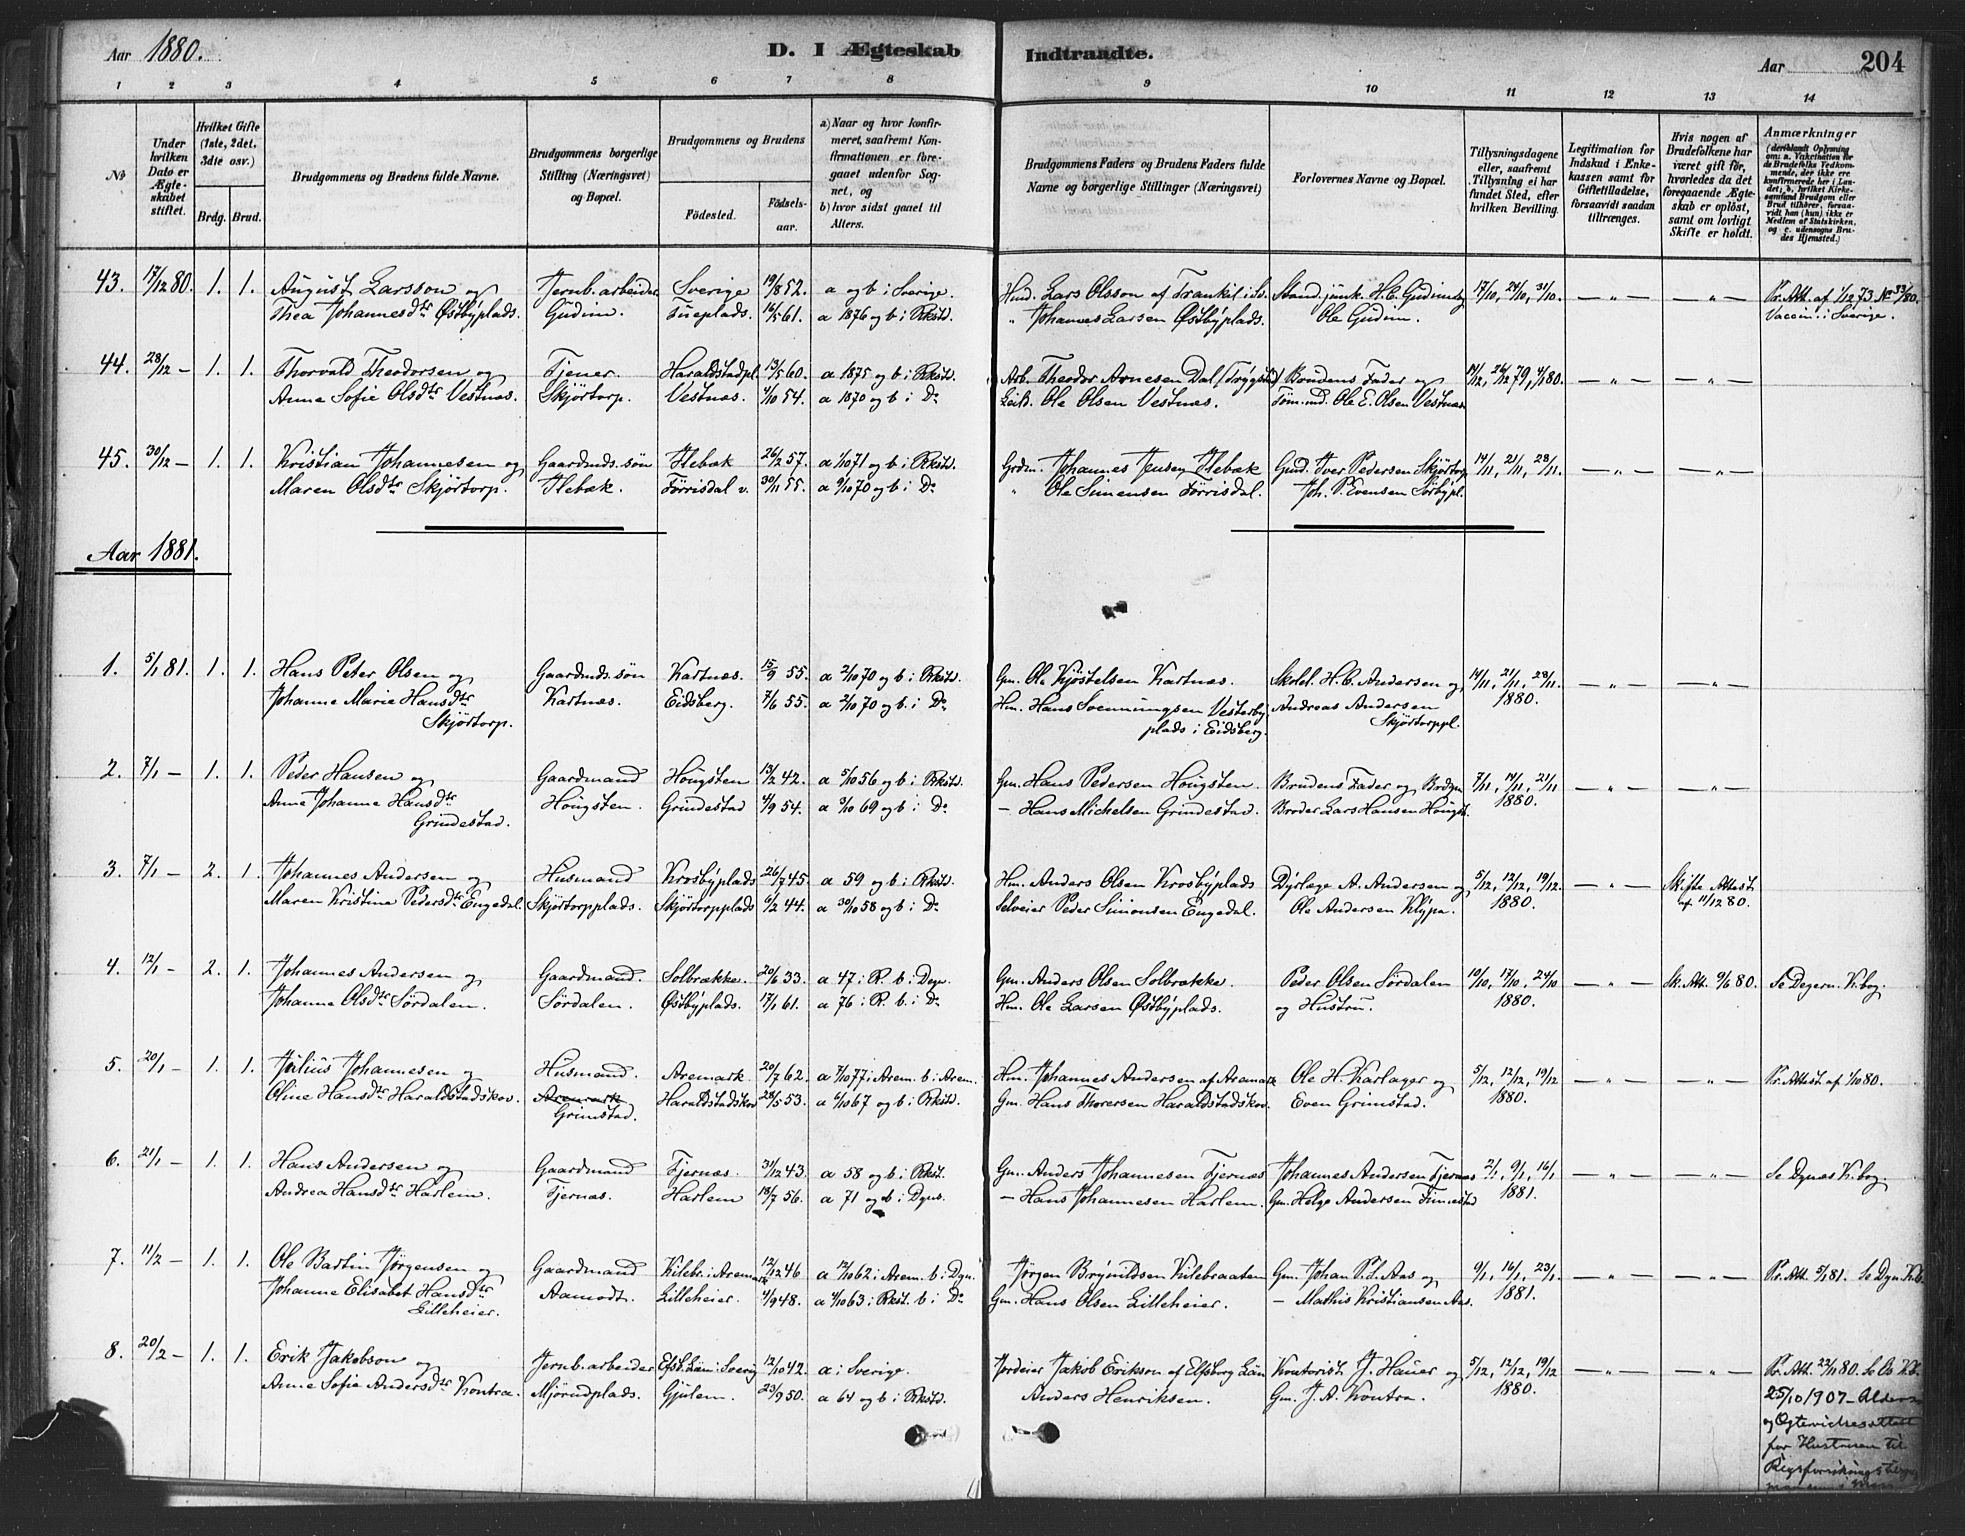 Aar 1880. D. I Ægteskab Indtraadte. Aar 204
1 2 3 4 5 6 7 8 9 10 11 12 13 14
No
Under hvilken Dato er Ægteskabet stiftet.
Hvilket Gifte (1ste, 2det, 3die osv.)
Brdg. Brud.
Brudgommens og Brudens fulde Navne.
Brudgommens borgerlige Stilling (Næringsvei) og Bopæl.
Brudgommens og Brudens
Födested. Födselsaar.
a) Naar og hvor konfirmeret, saafremt Konfirmationen er foregaaet udenfor Sognet, og
b) hvor sidst gaaet til Alters.
Brudgommens Faders og Brudens Faders fulde Navne og borgerlige Stillinger (Næringsvei)
Forlovernes Navne og Bopæl.
Tillysningsdagene eller, saafremt Tillysning ei har fundet Sted, efter hvilken Bevilling.
Legitimation for Indskud i Enkekassen samt for Giftetilladelse, forsaavidt saadan tiltrænges.
Hvis nogen af Brudefolkene har været gift för, hvorledes da det foregaaende Ægteskab er oplöst, samt om lovligt Skifte er holdt.
Anmærkninger (deriblandt Oplysning om: a. Vaccination for de Brudefolks Vedkommende, der ikke ere konfirmerede her i Landet; b. hvilket Kirkesamfund Brudgom eller Brud tilhörer, forsaavidt han (hun) ikke er Medlem af Statskirken, og c. udensogns Brudes Hjemsted.)
43. 17/12 80. 1. 1. August Larsson og Jernb. arbeider Sverige 19/8 52. a og b i Sverige. Hmd. Lars Olsson af Trankil i Sv. Stand. jünk. H. C. Gudim og 17/10, 24/10, 31/10. — „ — — „ — Pr. Att. af 1/12 73 No 33/80.
Thea Johannesdtr Østbÿplads. Gudim. Tüeplads. 16/5 61. a 1876 og b i Rkstd. „ Johannes Larsen Østbÿplads. Ole Gudim. Vaccin. i Sverige.
44. 28/12 — 1. 1. Thorvald Theodorsen og Tjener Haraldstadpl. 13/5 60. a 1875 og b i Rkstd. Arb. Theodor Arnesen Dal (Trygstad) Brudens Fader og 19/12, 26/12 79, 4/1 80. — „ — — „ —
Anne Sofie Olsdtr Vestnæs. Skjörtorp. Vestnæs. 4/10 54. a 1870 og b i Do Leil. Ole Olsen Vestnæs. Töm.md. Ole E. Olsen Vestnæs
45. 30/12 — 1. 1. Kristian Johannesen og Gaardmds. sön Ilebæk 26/2 57. a 1/10 71 og b i Rkstd. Grdm. Johannes Jensen Ilebæk Gmd. Iver Pedersen Skjörtorp 14/11, 21/11, 28/11. — „ — — „ —
Maren Olsdtr Skjörtorp. Ilebæk. Törrisdal v. 30/11 55. a 9/10 70 og b i Do „ Ole Simensen Törrisdal. Joh. P. Evensen Sörbÿpl.
Aar 1881.
1. 5/1 81. 1. 1. Hans Peter Olsen og Gaardmds. sön Kartnæs. 15/9 55. a 2/10 70 og b i Rkstd. Gm. Ole Kjöstelsen Kartnæs. Skolel. H. C. Andersen og 14/11, 21/11, 28/11.
Johanne Marie Hansdtr Kartnæs. Eidsberg. 7/6 55. a 2/10 70 og b. i Do Hm. Hans Svenningsen Vesterby Andreas Andersen 1880. — „ — — „ —
Skjörtorp. plads i Eidsberg. Skjörtorppl.
2. 7/1 — 1. 1. Peder Hansen og Gaardmand Höugsten 13/2 42. a 5/10 56 og b i Rkstd. Gm. Hans Pedersen Höugsten. Brudens Fader og Brdgm 7/11, 14/11, 21/11
Anne Johanne Hansdtr Höugsten. Grindestad 4/9 54. a 3/10 69 og b i Do — Hans Michelsen Grindestad. Broder Lars Hansen Höugst. 1880. — „ — — „ —
Grindestad.
3. 7/1 — 2. 1. Johannes Andersen og Husmand Krosbÿplads 26/7 45. a 59 og b i Rkstd. Hm. Anders Olsen Krosbÿplads Dÿrlæge A. Andersen og 5/12, 12/12, 19/12. — „ — Skifte Attest
Maren Kristine Pedersdtr Engedal. Skjörtorpplads. Skjörtorpplads 6/2 44. a 30/10 58 og b i Do Selveier Peder Simonsen Engedal. Ole Andersen Klÿpa. 1880. af 11/12 80.
4. 12/1 — 2. 1. Johannes Andersen og Gaardmand Solbrække. 20/6 33. a 47 i R. b i Degn. Gm. Anders Olsen Solbrække. Peder Olsen Sördalen 10/10, 17/10, 24/10 — „ — Sk. Att. 9/6 80. Se Degern. K.bog.
Johanne Olsdtr Sördalen. Sördalen. Østbÿplads. 17/1 61. a 76 i R. b. i Do Hm. Ole Larsen Østbÿplads. og Hustru. 1880.
5. 20/1 — 1. 1. Julius Johannesen og Husmand. Aremark. 20/7 62. a 7/10 77 i Arem. b i Arem. Hm. Johannes Andersen af Aremark Ole H. Karlager og 5/12, 12/12, 19/12 — „ — — „ — Pr. Attest af 1/10 80.
Oline Hansdtr Haraldstadskov. Aremark Haraldstadskov 28/5 53. a 6/10 67 og b i Rkstd. Gm. Hans Thoresen Haraldstadskov. Even Grimstad. 1880.
Grimstad.
6. 21/1 — 1. 1. Hans Andersen og Gaardmand Tjernæs. 31/12 43. a 58 og b i Rkst. Gm. Anders Johannesen Tjernæs Johannes Andersen Tjernæs 2/1, 9/1, 16/1 — „ — — „ — Se Dgnæs K.bog.
Andrea Hansdtr Harlem. Tjernæs. Harlem 18/7 56. a 71 og b i Dgns. — Hans Johannesen Harlem. Gm. Helge Andersen Finnestad 1881.
7. 11/2 — 1. 1. Ole Bastin Jörgensen og Gaardmand Kilebr. i Aremark 12/12 46 a 12/10 62 i Arem. b. i Dgn. Jörgen Brÿnildsen Kilebraaten Gm. Johan P. L. Aas og 9/1, 16/1, 23/1 — „ — — „ — Pr. Att. 5/1 81. Se Dgn. K.b.
Johanne Elisabet Hansdtr Aamodt. Lilleheier. 4/9 48. a 4/10 63 i Rkst. b i Do Gm. Hans Olsen Lilleheier. — Mathis Kristiansen Aas. 1881.
Lilleheier.
8. 20/2 — 1. 1. Erik Jakobson og Jernb. arbeider Efsb. Län i Sverig 12/10 42. a i Sverige. Jordeier Jakob Erikson af Elfsborg Län Kontorist J. Haüer og 5/12, 12/12, 19/12 — „ — — „ — Pr. Att. 22/11 80. Se Os K.b.
Anne Sofie Andersdtr Kontra. Mjörudplads. Gjulem. 23/9 50. a 64 og b i Rkstd. Anders Henriksen. Gm. J. A. Kontra. 1880. 25/10 1907 – Alders
og Ægtevielsesattest
for Hustruen til
Rigsforsikrings